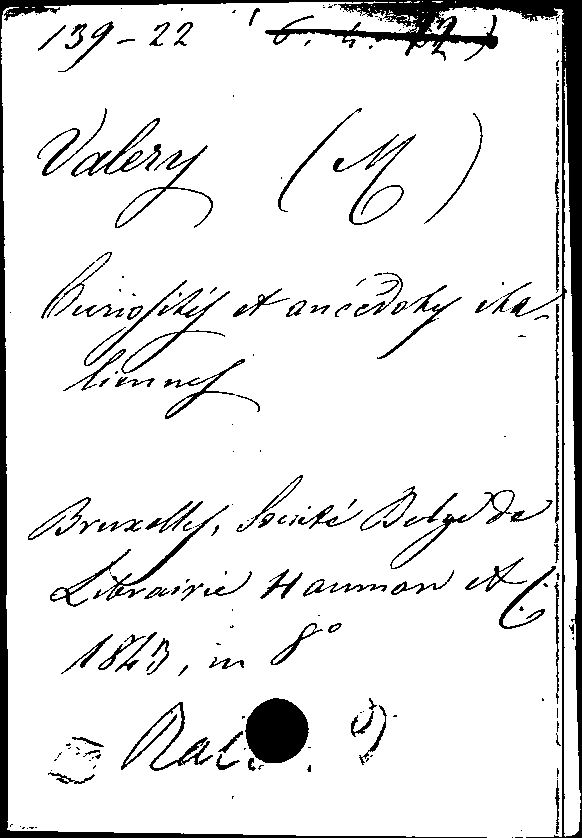 139-22 6. 4. 22
Valery (M)
Curiosités et anécdotes ita-
liennes
Bruxelles, Société Belge de
Librairie Hauman et C.
1843, in 8°